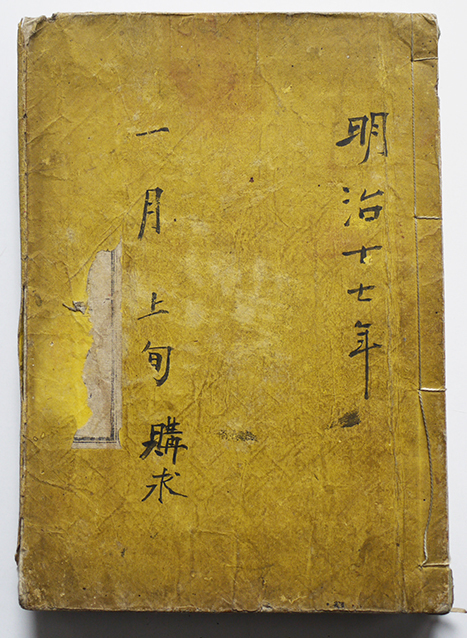 明治十七年
一月上旬購求